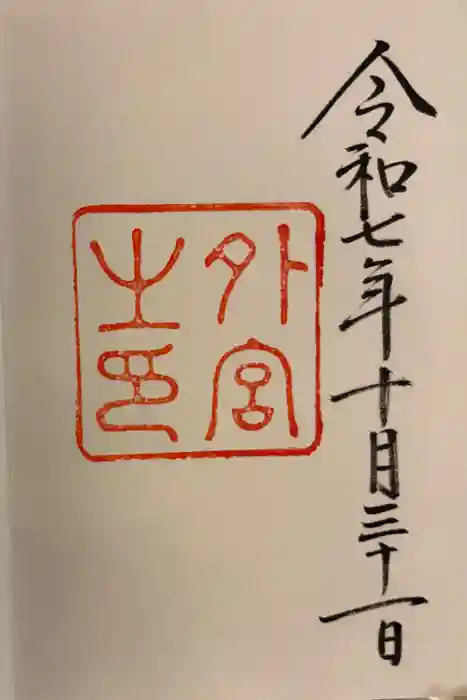 令和七年十月三十一日
外宮
之印